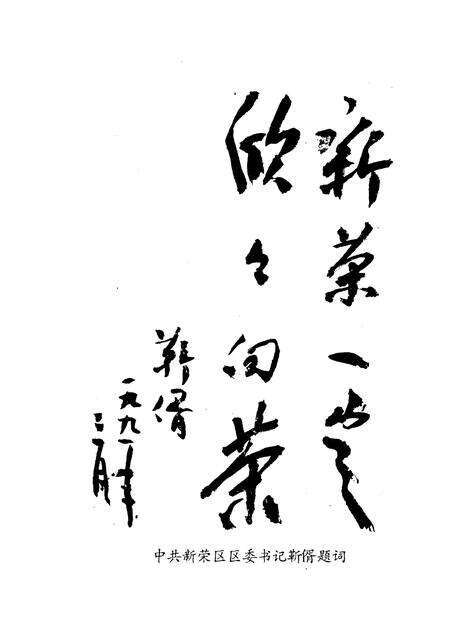 新荣一定
欣々向荣
靳偦
一九九一年
月
中共新荣区区委书记靳偦题词